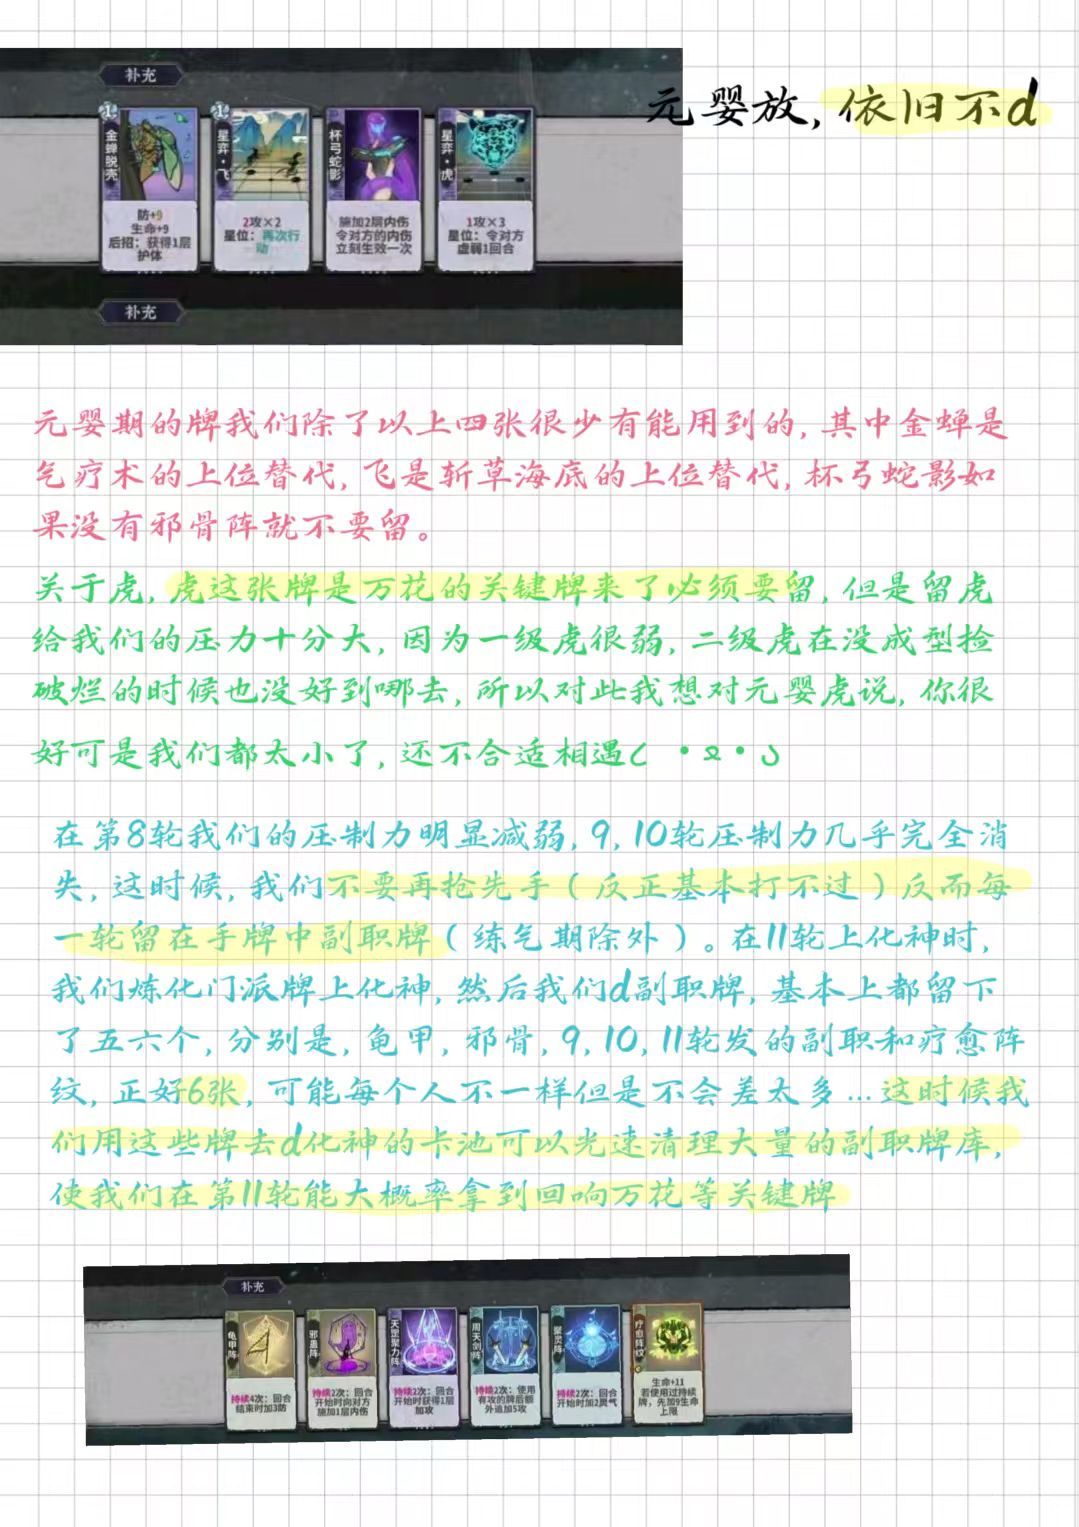 补充
元婴放，依旧不d
1
金蝉脱壳
防+9
生命+9
后招：获得1层
护体
1
星弈·飞
2攻×2
星位：再次行
动
杯弓蛇影
施加2层内伤
令对方的内伤
立刻生效一次
星弈·虎
1攻×3
星位：令对方
虚弱1回合
补充
元婴期的牌我们除了以上四张很少有能用到的，其中金蝉是
气疗术的上位替代，飞是斩草海底的上位替代，杯弓蛇影如
果没有邪骨阵就不要留。
关于虎，虎这张牌是万花的关键牌来了必须要留，但是留虎
给我们的压力十分大，因为一级虎很弱，二级虎在没成型捡
破烂的时候也没好到哪去，所以对此我想对元婴虎说，你很
好可是我们都太小了，还不合适相遇( ·ܫ· )
在第8轮我们的压制力明显减弱，9，10轮压制力几乎完全消
失，这时候，我们不要再抢先手（反正基本打不过）反而每
一轮留在手牌中副职牌（练气期除外）。在11轮上化神时，
我们炼化门派牌上化神，然后我们d副职牌，基本上都留下
了五六个，分别是，龟甲，邪骨，9，10，11轮发的副职和疗愈阵
纹，正好6张，可能每个人不一样但是不会差太多...这时候我
们用这些牌去d化神的卡池可以光速清理大量的副职牌库，
使我们在第11轮能大概率拿到回响万花等关键牌
补充
龟甲阵
持续4次：回合
结束时加3防
邪蛊阵
持续2次：回合
开始时向对方
施加1层内伤
天罡聚力阵
持续2次：回合
开始时获得1层
加攻
周天剑阵
持续2次：使用
有攻的牌后额
外追加5攻
聚灵阵
持续2次：回合
开始时加2灵气
疗愈阵纹
生命+11
若使用过持续
牌，先加9生命
上限